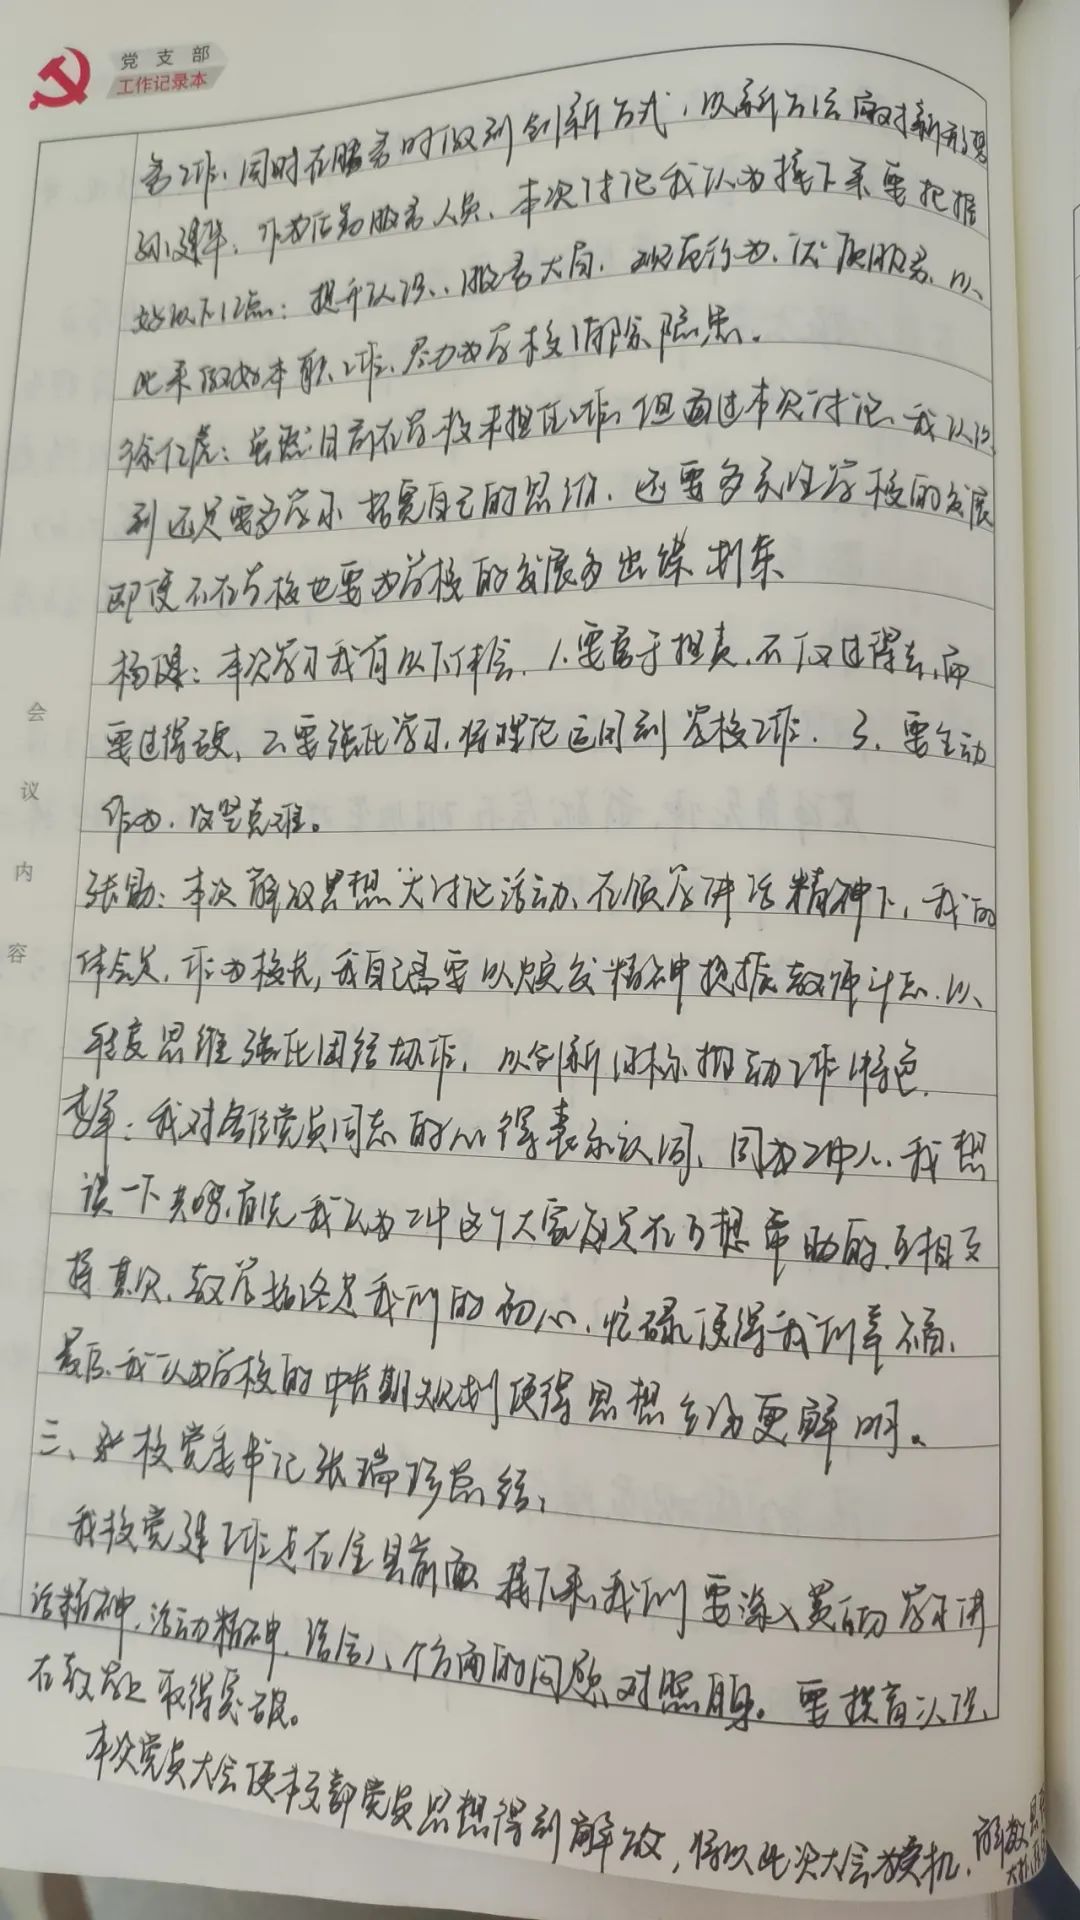 党支部
工作记录本
务工作、同时在服务时做到创新方式,以新方法应对新形势
孙建华:作为后勤服务人员,本次讨论我认为接下来要把握
好以下几点:提升认识、服务大局、规范行为、优质服务、以
此来做好本职工作、尽力为学校消除隐患。
徐仁虎:虽然目前在学校未担任工作,但通过本次讨论、我认识
到还是要多学习 拓宽自己的思维,还要多关注学校的发展
即便不在学校也要为学校的发展多出谋划策
杨:本次学习我有以下体会,1.要富于担责,不仅过得去,而
要过得硬,2要强化学习,将理论运用到学校工作. 3、要主动
作为,攻坚克难。
张勋:本次解放思想大讨论活动、在领学讲话精神下,我的
体会是,作为校长,我自己需要以焕发精神提振教师斗志.以
思维强化团结协作,以创新目标推动工作特色.
李军:我对各位党员同志的心得表示认同、同为二中人、我想
谈一下共鸣,首先我认为二中这个大家庭是在互想帮助的,互相支
持 其次、教学始终是我们的初心,忙碌使得我们幸福、
最后、我认为学校的中长期规划使得思想主动更解明。
三、学校党委书记张瑞珍总结:
我校党建工作走在全县前面 接下来,我们要深入贯彻学习讲
话精神,活动精神,结合八个方面的问题对照自身。要提高认识、
在教育上取得突破。
本次党员大会使本支部党员思想得到解放,将以此次大会为契机,解放思想
会议内容